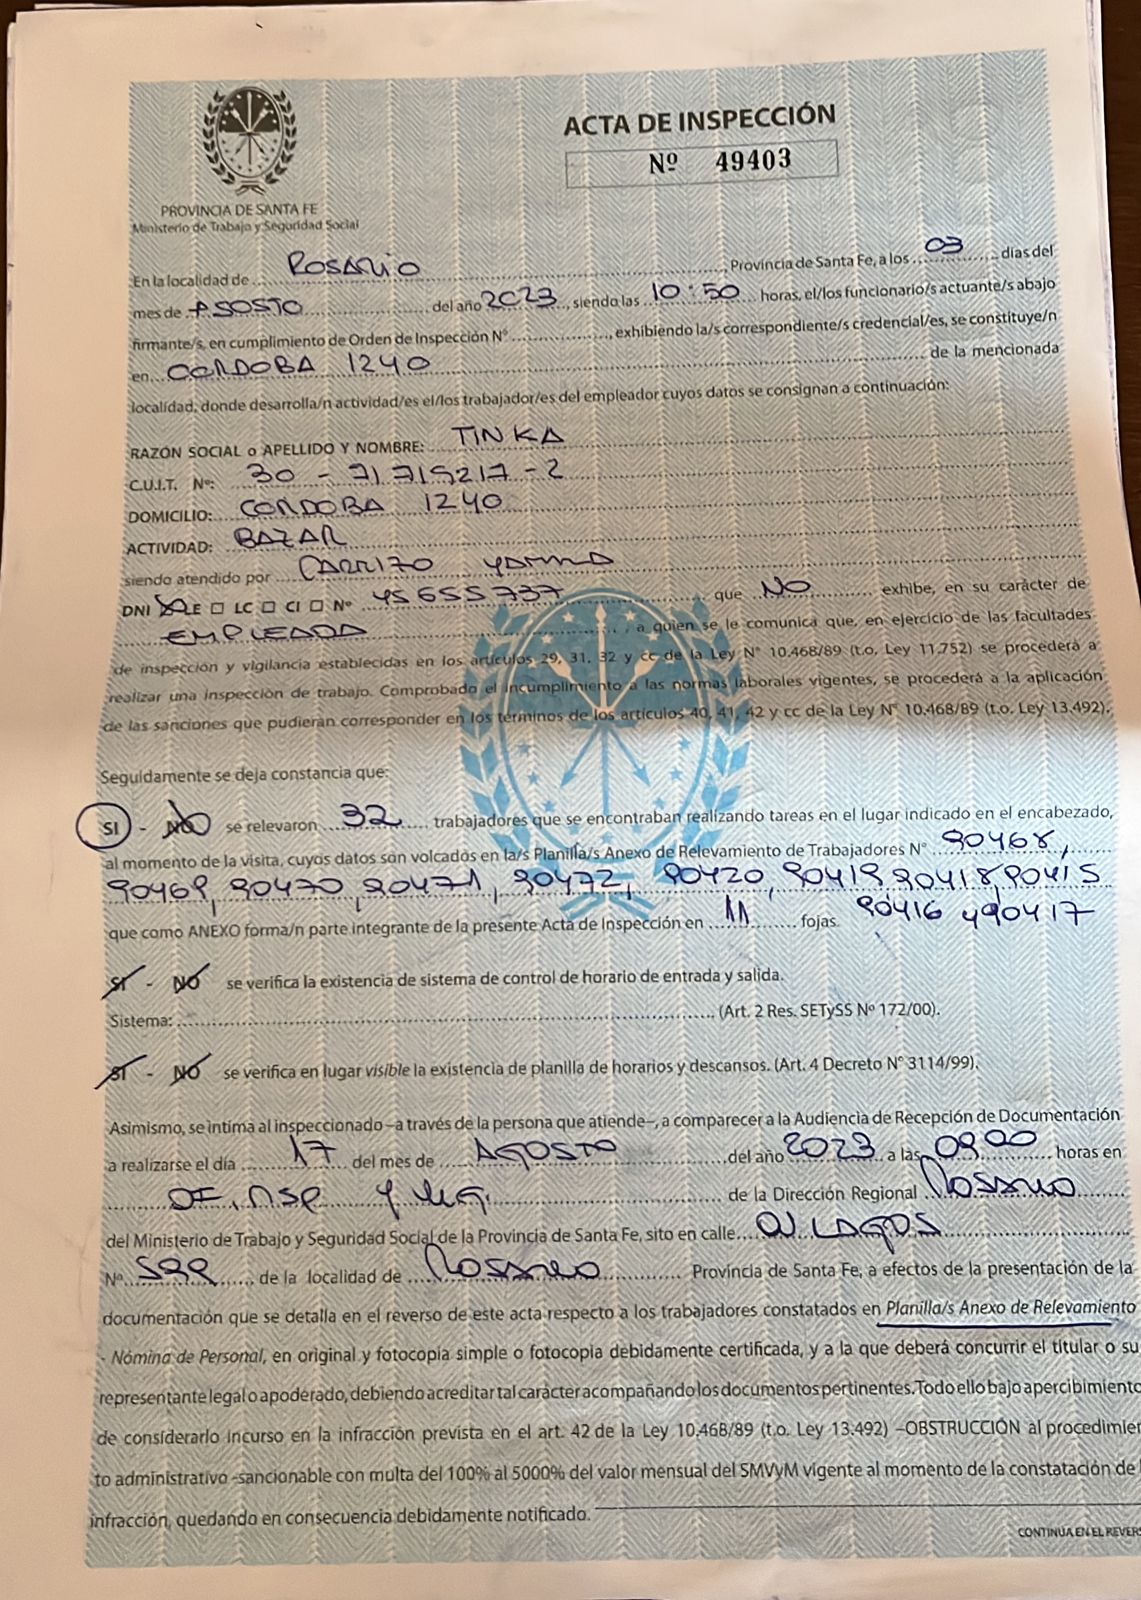 ACTA DE INSPECCIÓN
Nº 49403
PROVINCIA DE SANTA FE
Ministerio de Trabajo y Seguridad Social
En la localidad de ROSARIO, Provincia de Santa Fe, a los 03 días del
mes de AGOSTO del año 2023, siendo las 10:50 horas, el/los funcionario/s actuante/s abajo
firmante/s, en cumplimiento de Orden de Inspección N° ........, exhibiendo la/s correspondiente/s credencial/es, se constituye/n
en CORDOBA 1240 de la mencionada
localidad, donde desarrolla/n actividad/es el/los trabajador/es del empleador cuyos datos se consignan a continuación:
RAZÓN SOCIAL o APELLIDO Y NOMBRE: TINKA
C.U.I.T. Nº: 30 - 71715217 - 2
DOMICILIO: CORDOBA 1240
ACTIVIDAD: BAZAR
siendo atendido por CARRIZO
DNI LE □ LC □ CI □ N° 45655737 que NO exhibe, en su carácter de
EMPLEADA, a quien se le comunica que, en ejercicio de las facultades
de inspección y vigilancia establecidas en los artículos 29, 31, 32 y cc de la Ley N° 10.468/89 (t.o. Ley 11.752) se procederá a
realizar una inspección de trabajo. Comprobado el incumplimiento a las normas laborales vigentes, se procederá a la aplicación
de las sanciones que pudieran corresponder en los términos de los artículos 40, 41, 42 y cc de la Ley N° 10.468/89 (t.o. Ley 13.492).
Seguidamente se deja constancia que:
SI - NO se relevaron 32 trabajadores que se encontraban realizando tareas en el lugar indicado en el encabezado,
al momento de la visita, cuyos datos son volcados en la/s Planilla/s Anexo de Relevamiento de Trabajadores N° 90468,
90469, 90470, 90471, 90472, 90420, 90419, 90418, 90415
que como ANEXO forma/n parte integrante de la presente Acta de Inspección en 11 fojas. 90416 y 90417
SI - NO se verifica la existencia de sistema de control de horario de entrada y salida.
Sistema: ........ (Art. 2 Res. SETySS Nº 172/00).
SI - NO se verifica en lugar visible la existencia de planilla de horarios y descansos. (Art. 4 Decreto N° 3114/99).
Asimismo, se intima al inspeccionado –a través de la persona que atiende–, a comparecer a la Audiencia de Recepción de Documentación
a realizarse el día 17 del mes de AGOSTO del año 2023 a las 09.00 horas en
de la Dirección Regional Rosario
del Ministerio de Trabajo y Seguridad Social de la Provincia de Santa Fe, sito en calle OV LAGOS
Nº 599 de la localidad de Rosario Provincia de Santa Fe, a efectos de la presentación de la
documentación que se detalla en el reverso de este acta respecto a los trabajadores constatados en Planilla/s Anexo de Relevamiento
- Nómina de Personal, en original y fotocopia simple o fotocopia debidamente certificada, y a la que deberá concurrir el titular o su
representante legal o apoderado, debiendo acreditar tal carácter acompañando los documentos pertinentes. Todo ello bajo apercibimiento
de considerarlo incurso en la infracción prevista en el art. 42 de la Ley 10.468/89 (t.o. Ley 13.492) –OBSTRUCCIÓN al procedimien
to administrativo -sancionable con multa del 100% al 5000% del valor mensual del SMVyM vigente al momento de la constatación de l
infracción, quedando en consecuencia debidamente notificado.
CONTINUA EN EL REVERS